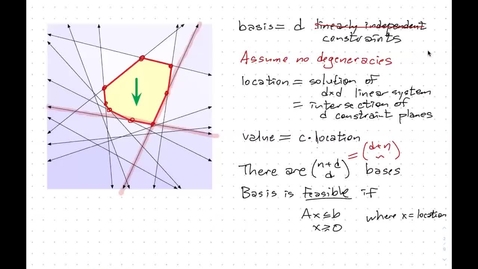 basis = d linearly independent
constraints
Assume no degeneracies
location = solution of
d×d linear system
= intersection of
d constraint planes
value = c · location
There are (n+d d) bases
= (d+n n)
Basis is feasible if
Ax ≤ b
x ≥ 0
where x = location